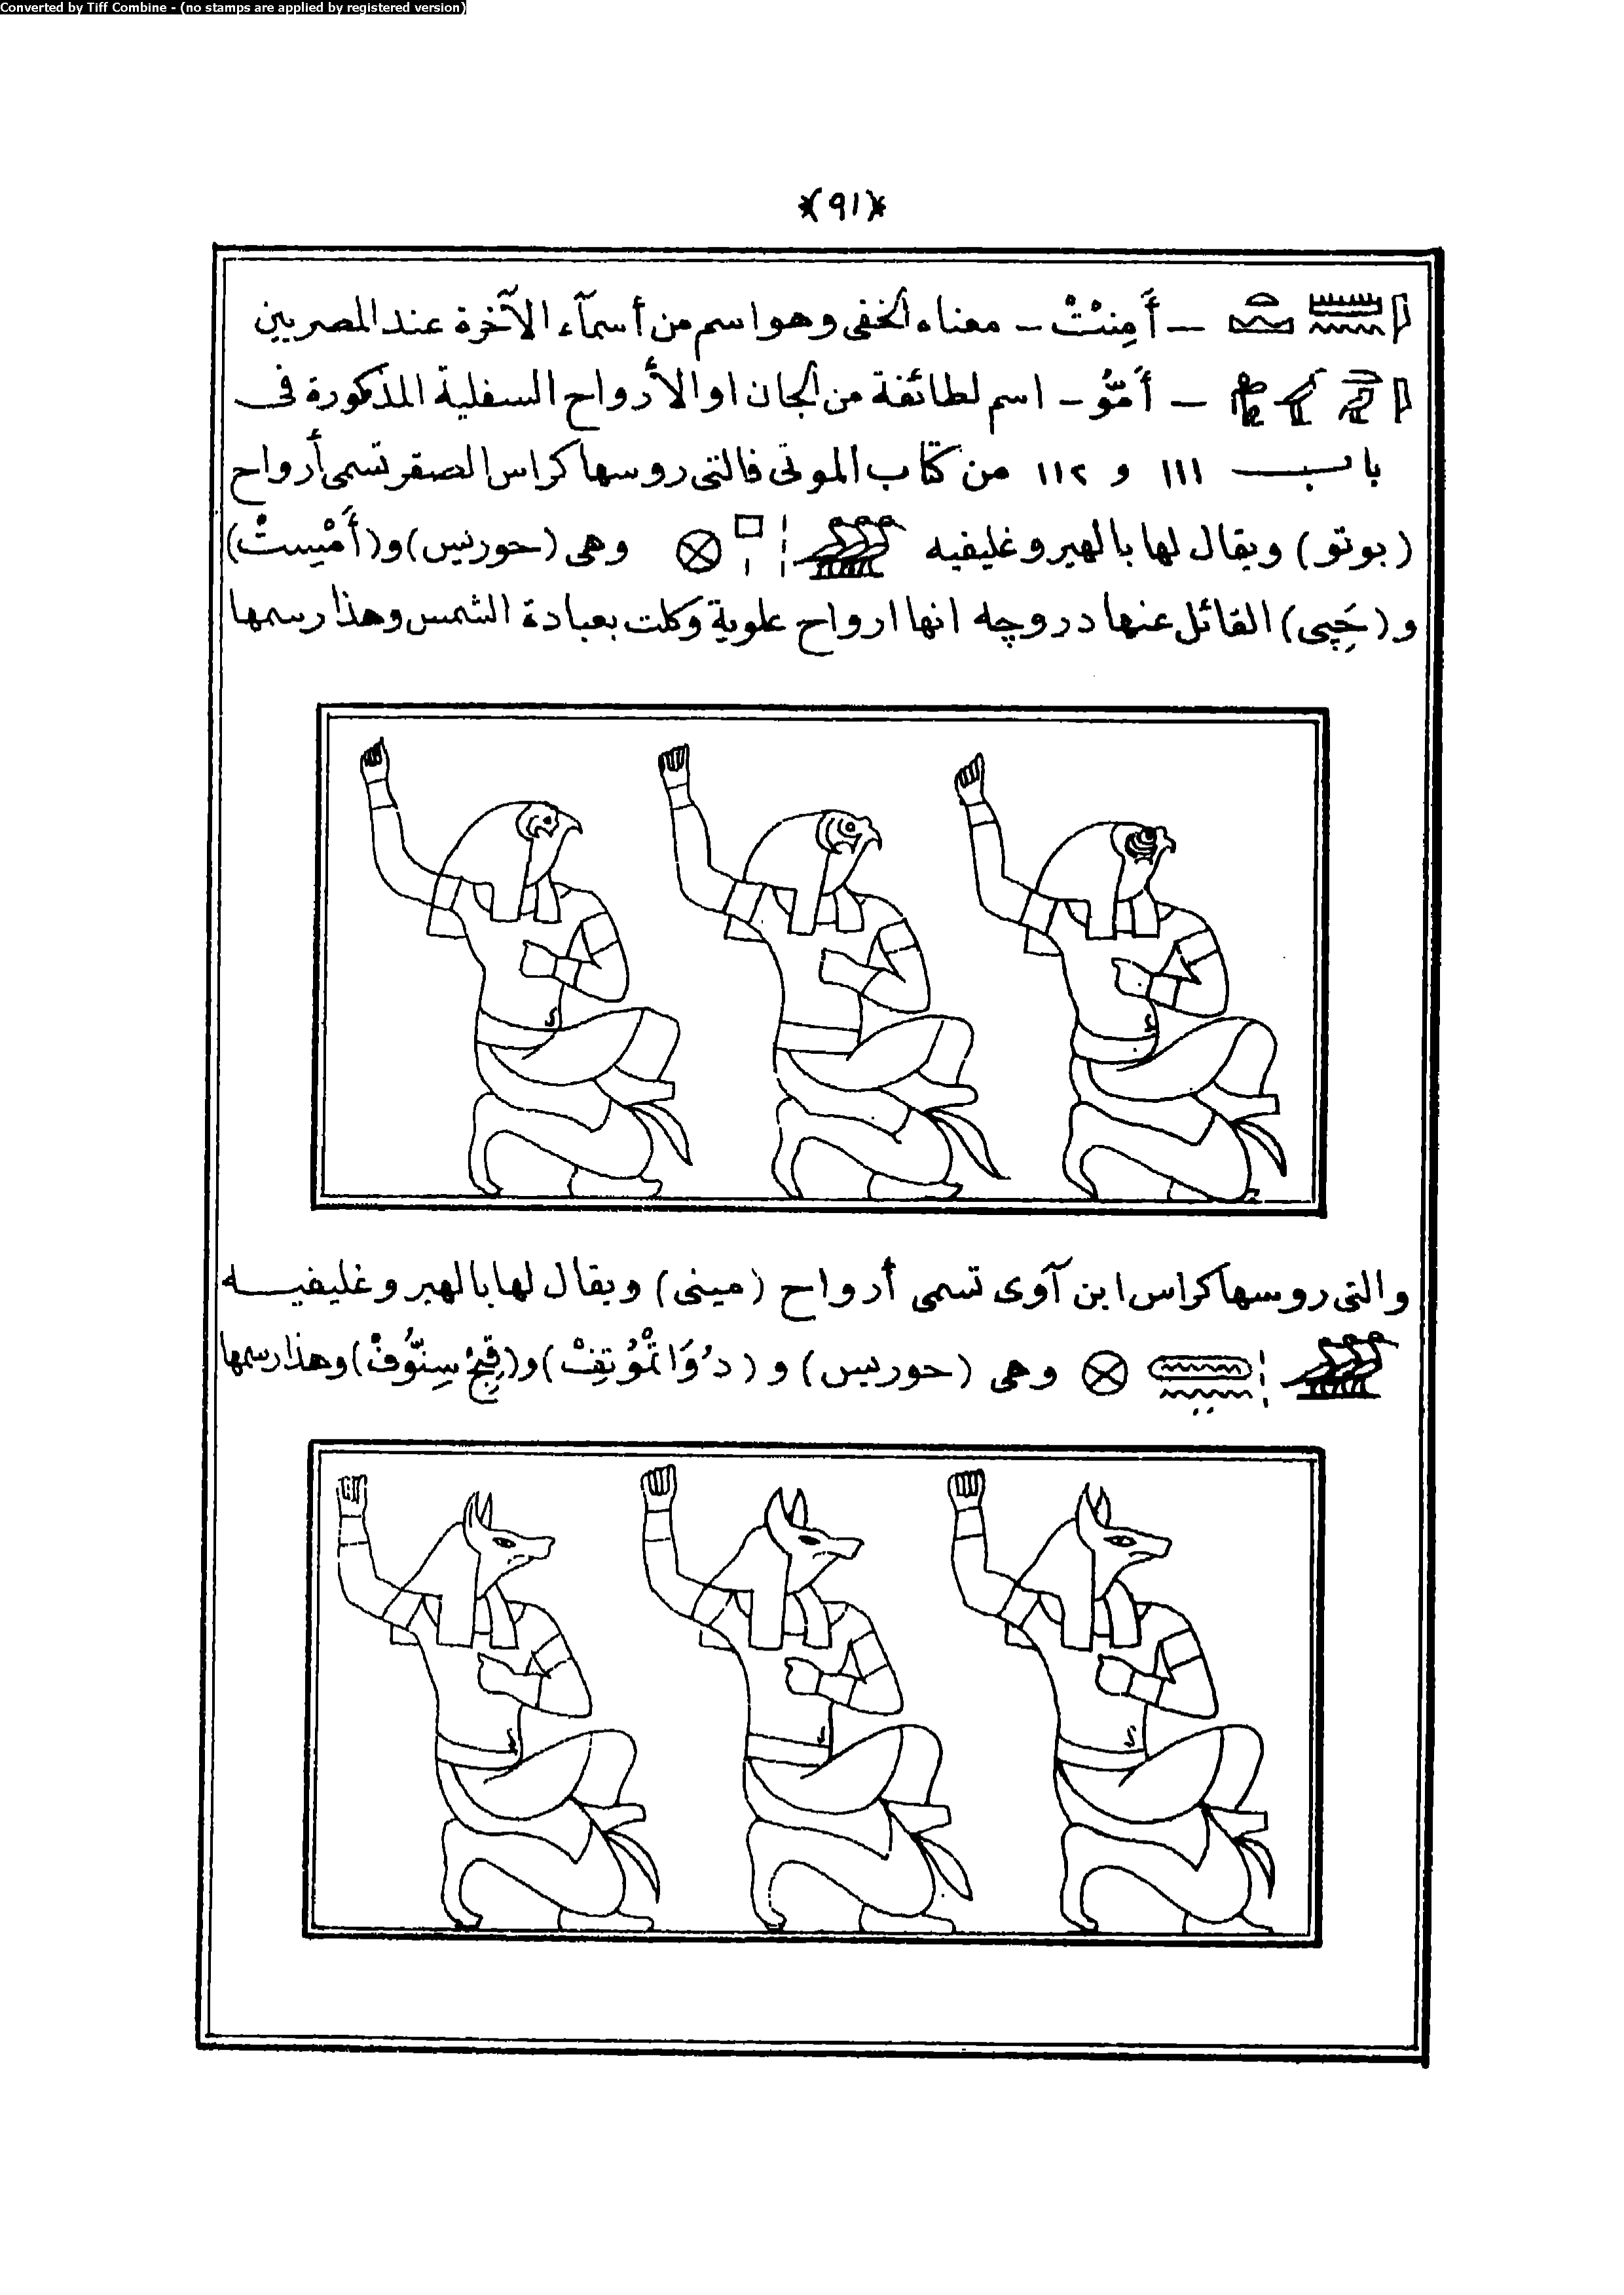 Converted by Tiff Combine - (no stamps are applied by registered version)
*(٩١)*
— أَمِنتْتْ – معناه الخفى وهو اسم من أسمآء الآخرة عند المصريين
— أَمُّو – اسم لطائفة من الجان او الأرواح السفلية المذكورة فى
باب ١١١ و ١١٢ من كتاب الموتى فالتى روسها كراس الصقر تسمى أرواح
(بوتو) ويقال لها بالهيروغليفيه وهى (حوريس) و(أَمْيِستْ)
و(حَپى) القائل عنها دروچه انها ارواح علوية وكلت بعبادة الشمس وهذا رسمها
والتى روسها كراس ابن آوى تسمى أرواح (مينى) ويقال لها بالهيروغليفيه
وهى (حوريس) و (دُوَاتْمُوتِفْ) و(قِبِحْ سِنُّوفْ) وهذا رسمها